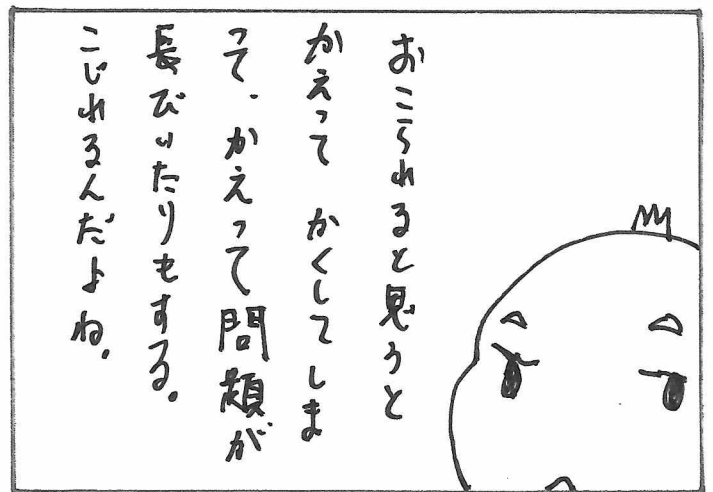 おこられると思うと
かえって かくしてしま
って、かえって問題が
長びいたりもする。
こじれるんだよね。